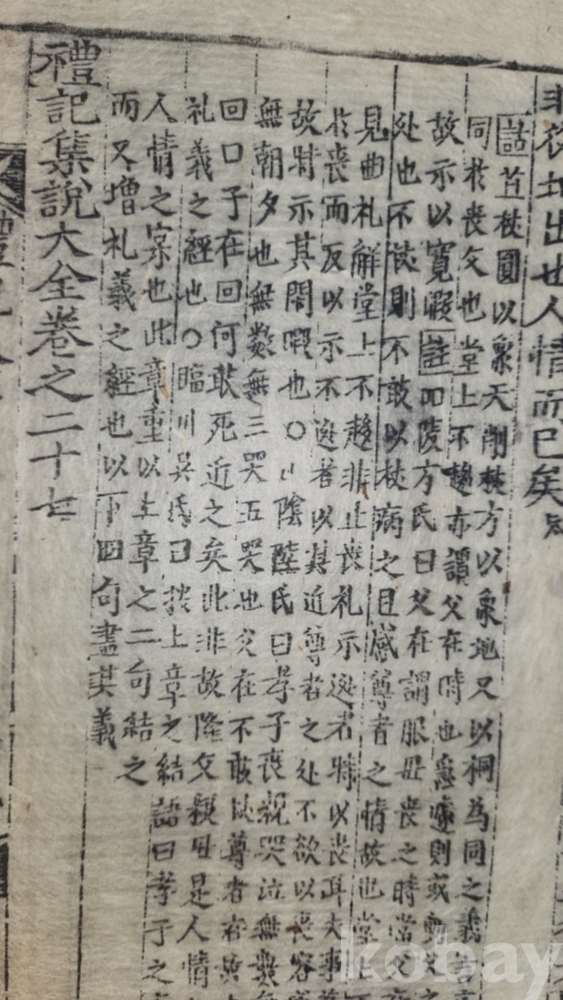 非從地出也人情而已矣
詁苴杖圓以象天削杖方以象地又以桐為同之義言
同於喪父也堂上不趨亦謂父在時也急遽則或動父之
故示以寬暇註四陵方氏曰父在謂服母喪之時當父
处也不彼則不敢以杖病之且慼尊者之情故也堂上不
見曲礼觧堂上不趨非止喪礼示遽者特以喪耳大事
於喪而反以示不遽者以其近尊者之处不欲以喪容
故特示其閑暇也○山陰陸氏曰孝子喪親哭泣無數
無朝夕也無数無三哭五哭也父在不敢以尊者在
回曰子在回何敢死近之矣此非故隆父親母是人情
礼義之經也○臨川吳氏曰按上章之結語曰孝子之
人情之實也此章重以上章之二句結之
而又增礼義之經也以下四句盡其義
禮記集說大全卷之二十七
kobay